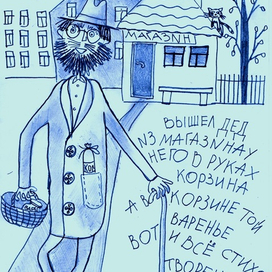 МАГАЗИН
ВЫШЕЛ ДЕД
ИЗ МАГАЗИНА У
НЕГО В РУКАХ
КОРЗИНА
А В КОРЗИНЕ ТОЙ
ВАРЕНЬЕ
ВОТ И ВСЁ СТИХО
ТВОРЕН